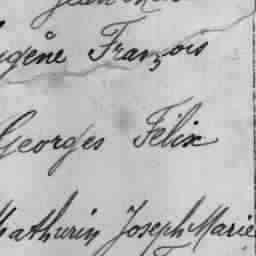 Eugène François
Georges Félix
Mathurin Joseph Marie